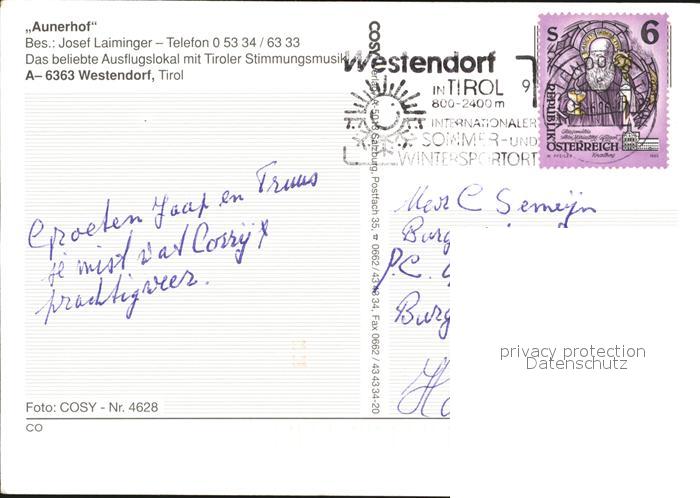 „Aunerhof"
Bes.: Josef Laiminger – Telefon 0 53 34 / 63 33
Das beliebte Ausflugslokal mit Tiroler Stimmungsmusik
A– 6363 Westendorf, Tirol
Westendorf
IN TIROL
800-2400 m
INTERNATIONALER
SOMMER- UND
WINTERSPORTORT
6
REPUBLIK
ÖSTERREICH
COSY
5016 Salzburg, Postfach 35, 0662/43 43 34, Fax 0662 / 43 43 34-20
Groeten Jaap en Truus
je mist wat Corrij
prachtig weer.
C Semeijn
P.C.
Foto: COSY - Nr. 4628
CO
privacy protection
Datenschutz